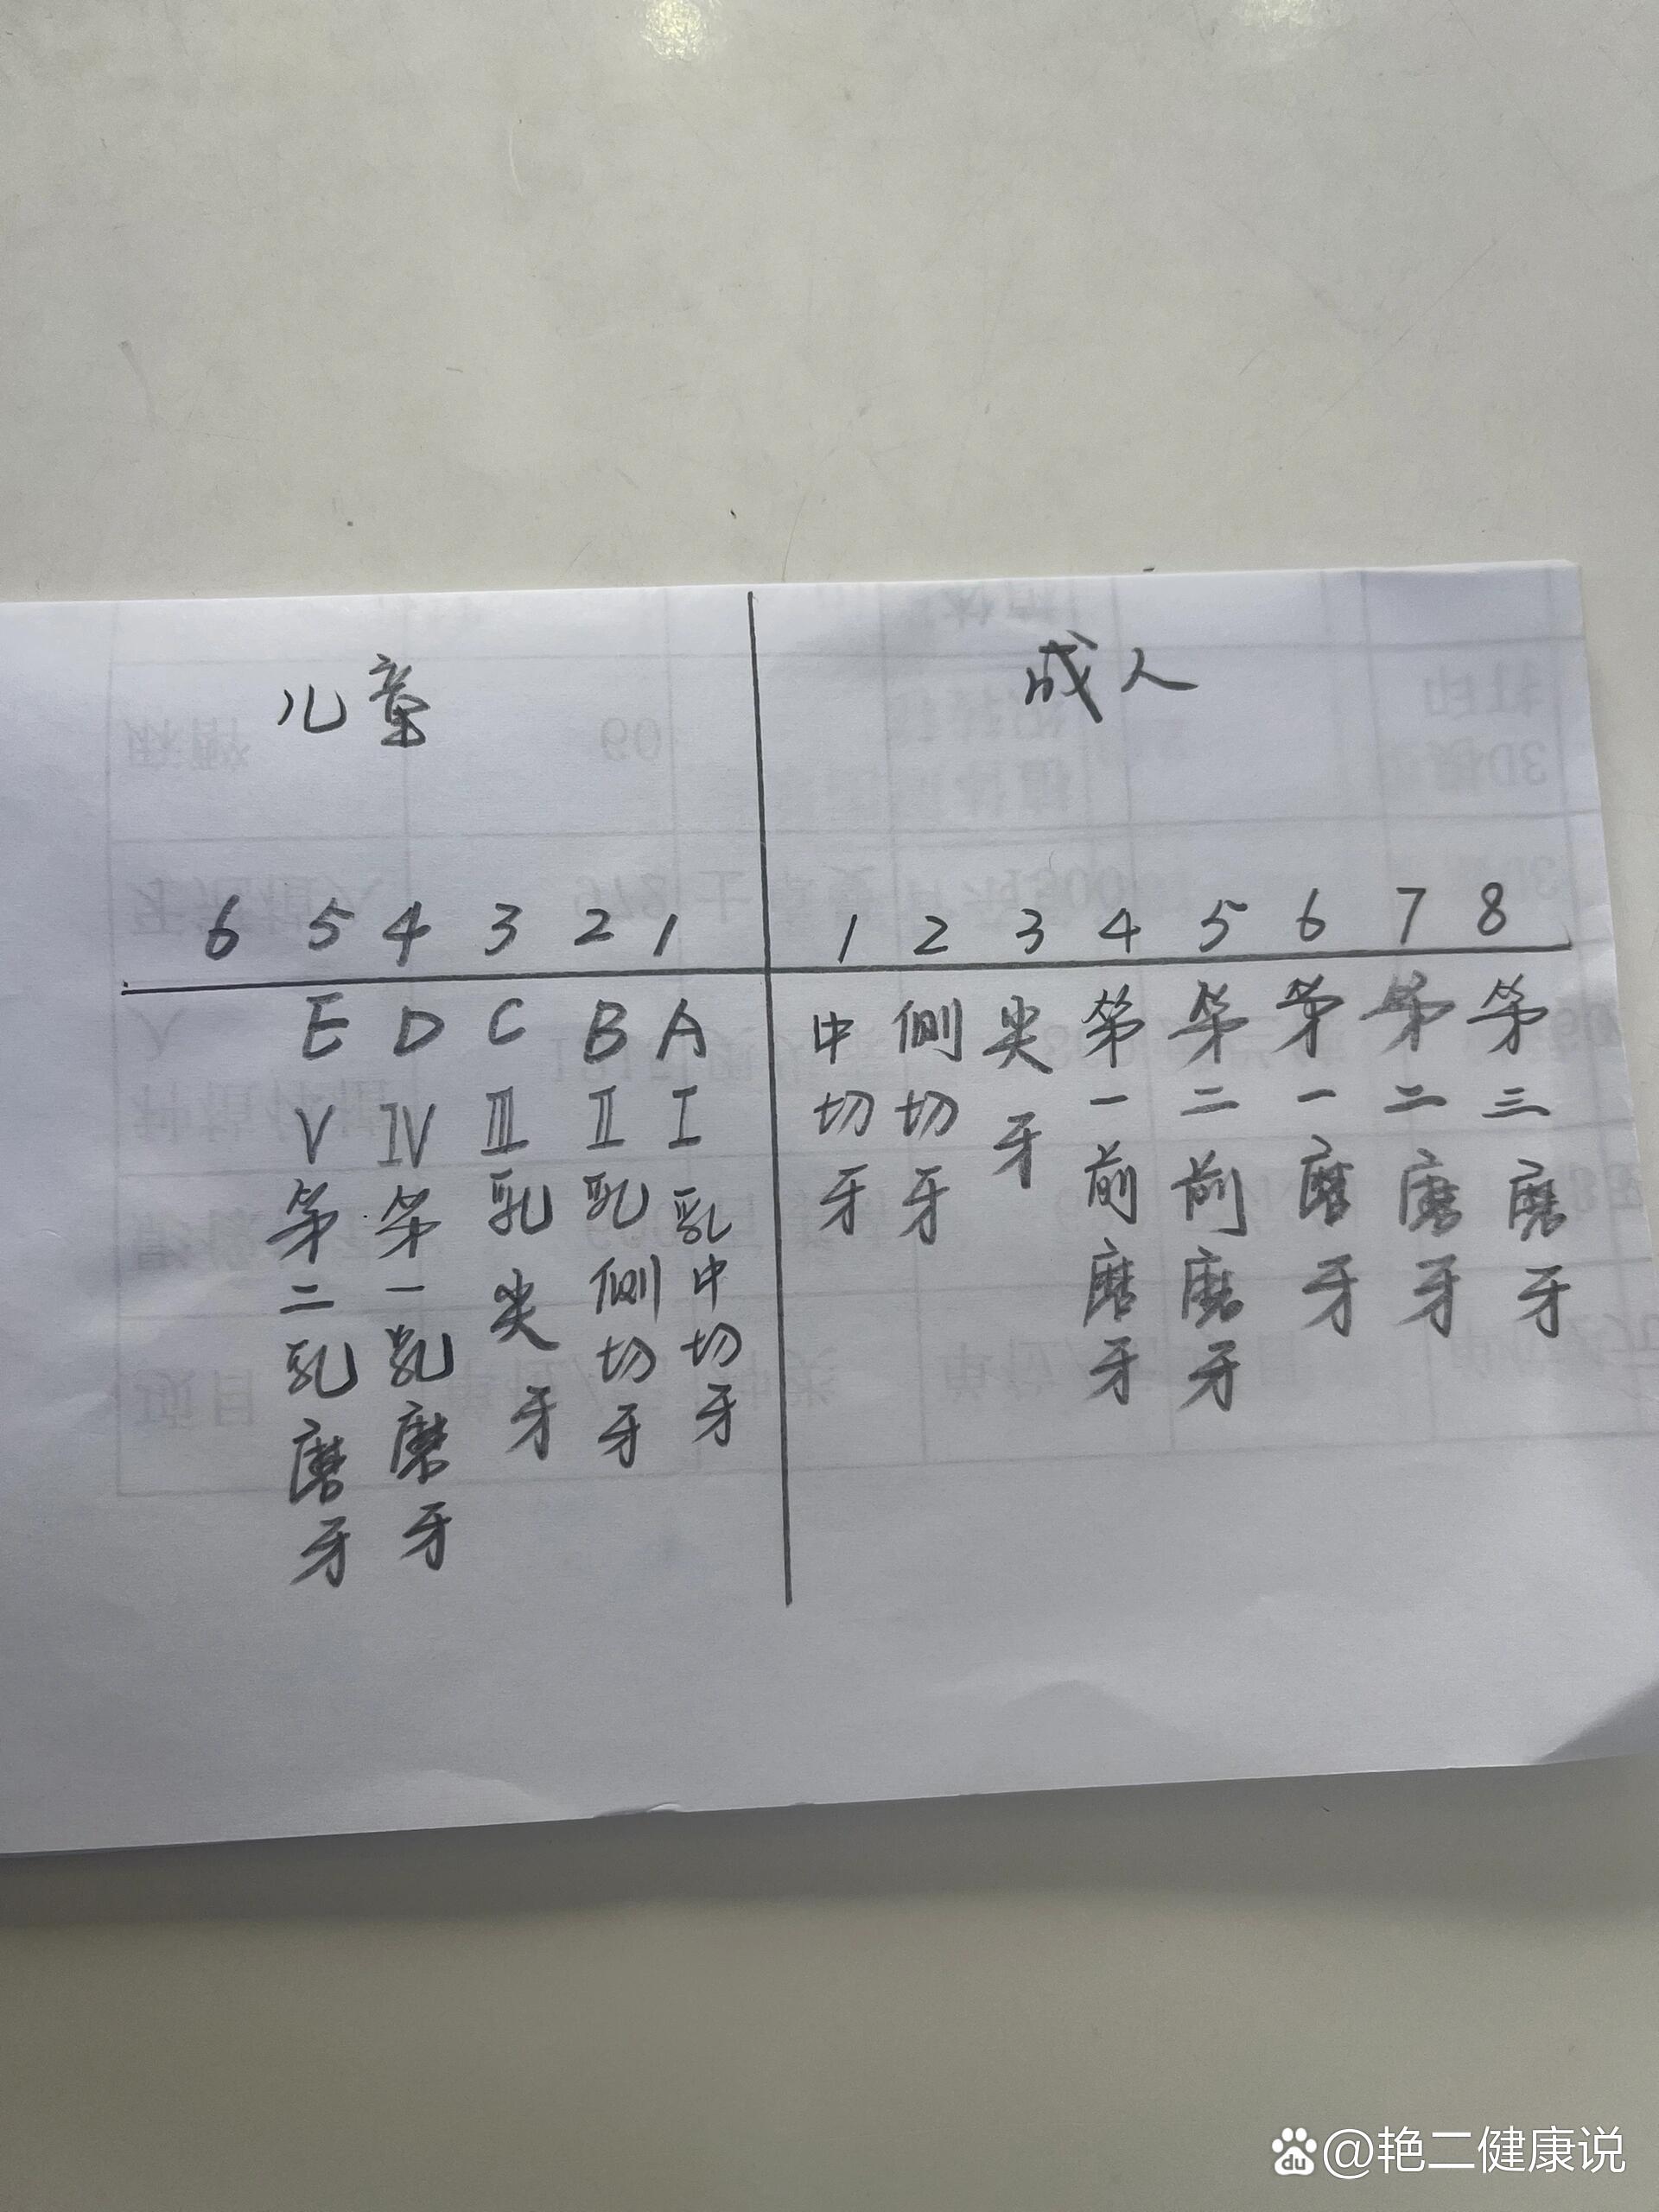 儿童 成人
6 5 4 3 2 1 1 2 3 4 5 6 7 8
E D C B A
V IV III II I
第二乳磨牙
第一乳磨牙
乳尖牙
乳侧切牙
乳中切牙
中切牙
侧切牙
尖牙
第一前磨牙
第二前磨牙
第一磨牙
第二磨牙
第三磨牙
@艳二健康说